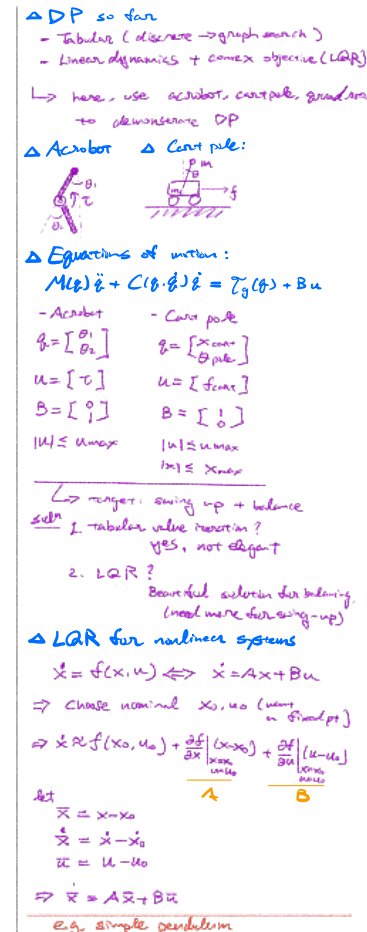 △ DP so far
- Tabular (discrete → graph search)
- Linear dynamics + convex objective (LQR)
↳ here, use acrobot, cartpole,
to demonstrate DP
△ Acrobot △ Cart pole:
θ₁ τ θ₂
m θ m f
△ Equations of motion:
M(q)q̈ + C(q,q̇)q̇ = τg(q) + Bu
- Acrobot - Cart pole
q = [θ₁ θ₂] q = [x cart θ pole]
u = [τ] u = [f cart]
B = [0 1] B = [1 0]
|u| ≤ umax |u| ≤ umax
|x| ≤ xmax
↳ target: swing up + balance
soln 1. tabular value iteration?
yes, not elegant
2. LQR?
Beautiful solution for balancing
(need more for swing-up)
△ LQR for nonlinear systems
ẋ = f(x,u) ⟺ ẋ = Ax + Bu
⇒ Choose nominal x₀, u₀ (want
a fixed pt)
⇒ ẋ ≈ f(x₀,u₀) + ∂f/∂x|x=x₀ u=u₀ (x-x₀) + ∂f/∂u|x=x₀ u=u₀ (u-u₀)
A B
let
x̄ = x-x₀
x̄̇ = ẋ-ẋ₀
ū = u-u₀
⇒ x̄̇ = Ax̄ + Bū
e.g. simple pendulum